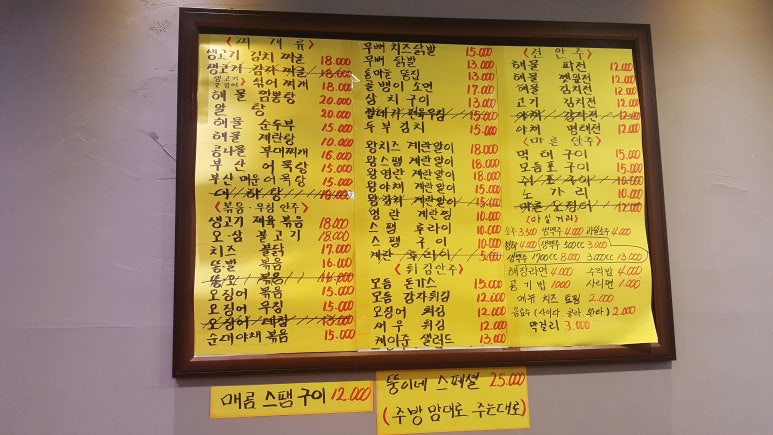 <찌개류>
생고기 김치 찌개 18.000
생고기 감자 찌개 18.000
생고기 섞어 찌개 18.000
해물 짬뽕탕 20.000
알 탕 20.000
해물 순두부 15.000
해물 계란탕 10.000
콩나물 부대찌개 16.000
부산 어묵탕 15.000
부산 매운어묵탕 15.000
<볶음·무침 안주>
생고기 제육 볶음 18.000
오·삼 불고기 18.000
치즈 불닭 17.000
똥발 볶음 16.000
오징어 볶음 15.000
오징어 무침 15.000
순대야채 볶음 15.000
무뼈 치즈닭발 15.000
무뼈 닭발 13.000
통마늘 똥집 13.000
골뱅이 소면 17.000
삼치구이 13.000
두부김치 15.000
왕치즈 계란말이 18.000
왕스팸 계란말이 18.000
왕명란 계란말이 18.000
왕야채 계란말이 15.000
왕김치 계란말이 15.000
명란 계란찜 10.000
스팸 후라이 10.000
스팸 구이 10.000
계란 후라이 5.000
<튀김안주>
모듬 돈까스 15.000
모듬 감자튀김 12.000
오징어 튀김 12.000
새우 튀김 12.000
케이준 샐러드 13.000
<전안주>
해물 파전 12.000
해물 깻잎전 12.000
해물 김치전 12.000
고기 김치전 12.000
야채 감자전 12.000
야채 명태전 12.000
<마른안주>
먹태구이 15.000
모듬포구이 15.000
쥐포구이 10.000
노가리 10.000
마른오징어 12.000
<마실거리>
소주 3.500 생맥주 4.000 과일소주 4.000
청하 4.000 생맥주 500cc 3.000
생맥주 1700cc 8.000 3.000cc 13.000
해장라면 4.000 주먹밥 4.000
공기밥 1000 사리면 1.000
여유 치즈 토핑 2.000
음료수 (사이다. 콜라. 환타) 2.000
막걸리 3.000
매콤 스팸구이 12.000
뚱이네 스페셜 25.000
(주방 맘대로 주는대로)